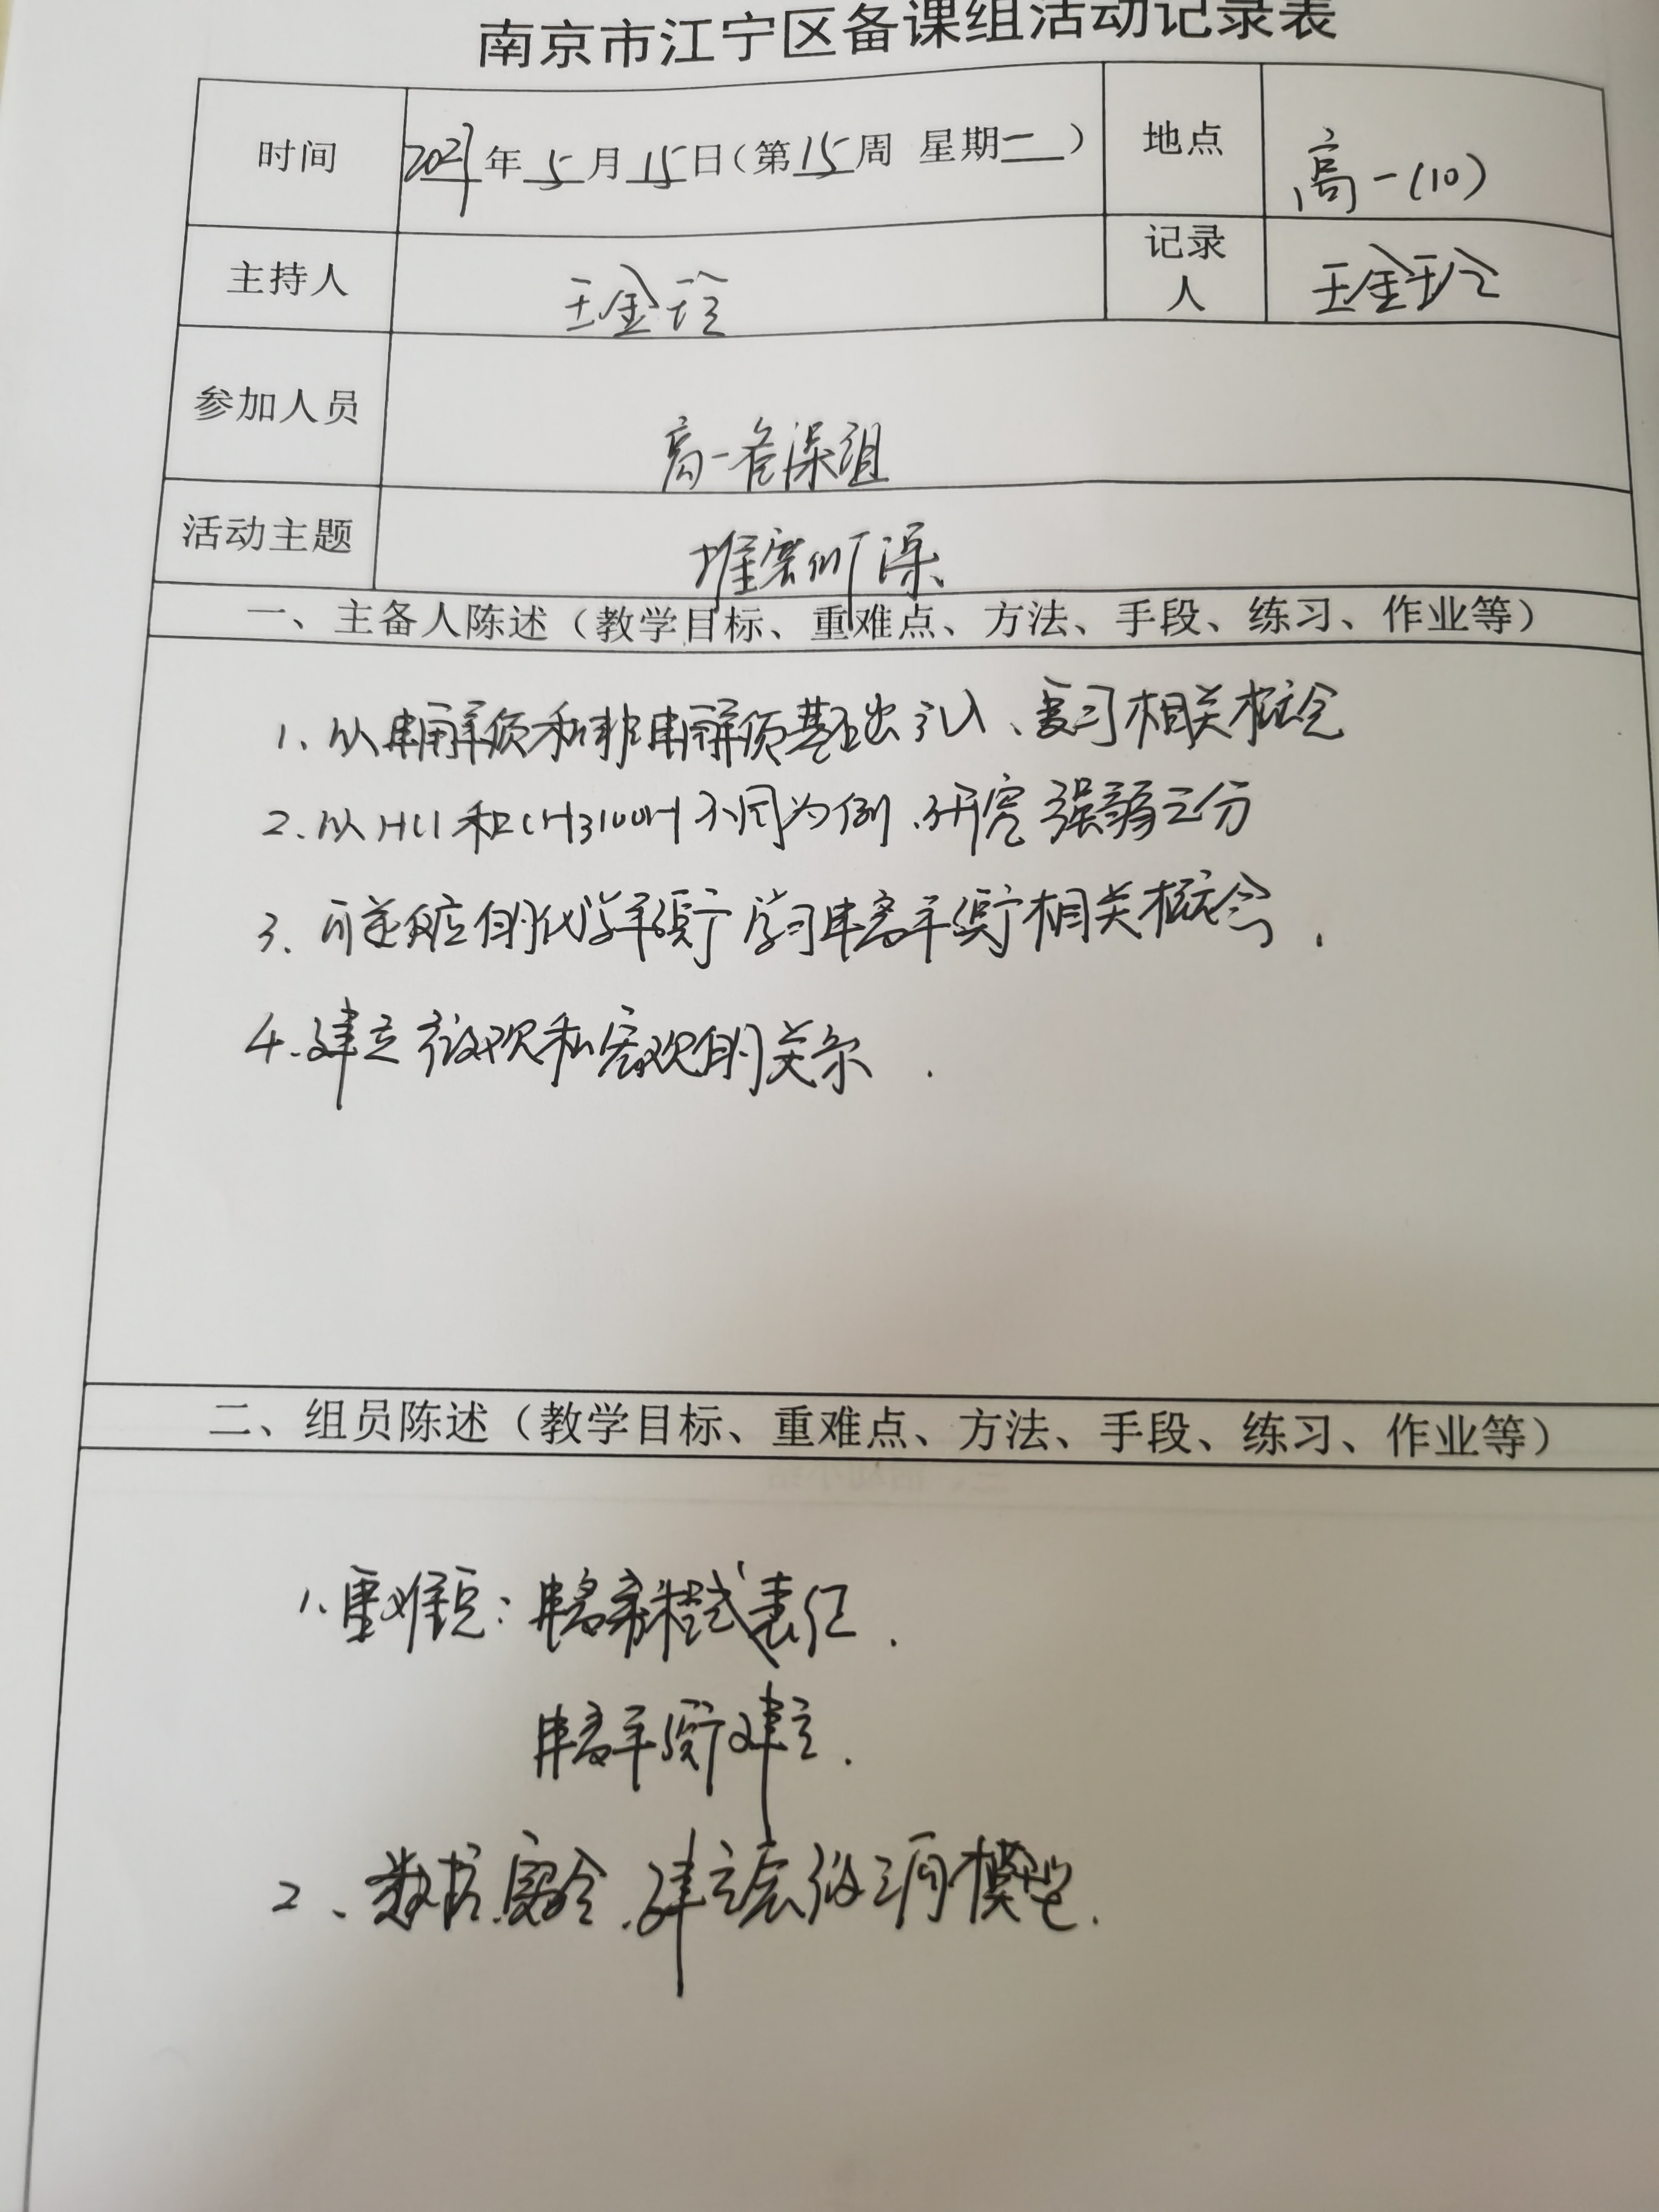 南京市江宁区备课组活动记录表
时间 2021年5月15日(第15周 星期二) 地点 高一(10)
主持人 王金玲 记录人 王金玲
参加人员 高一备课组
活动主题 课
一、主备人陈述(教学目标、重难点、方法、手段、练习、作业等)
1、从电解质和非电解质基础引入、复习相关概念
2、从HCl和CH3COOH不同为例、研究强弱之分
3、可逆反应的化学平衡学习电离平衡相关概念.
4、建立微观和宏观的关系.
二、组员陈述(教学目标、重难点、方法、手段、练习、作业等)
1、重难点:电离方程式书写.
电离平衡建立.
2、数据、实验、建立模型.